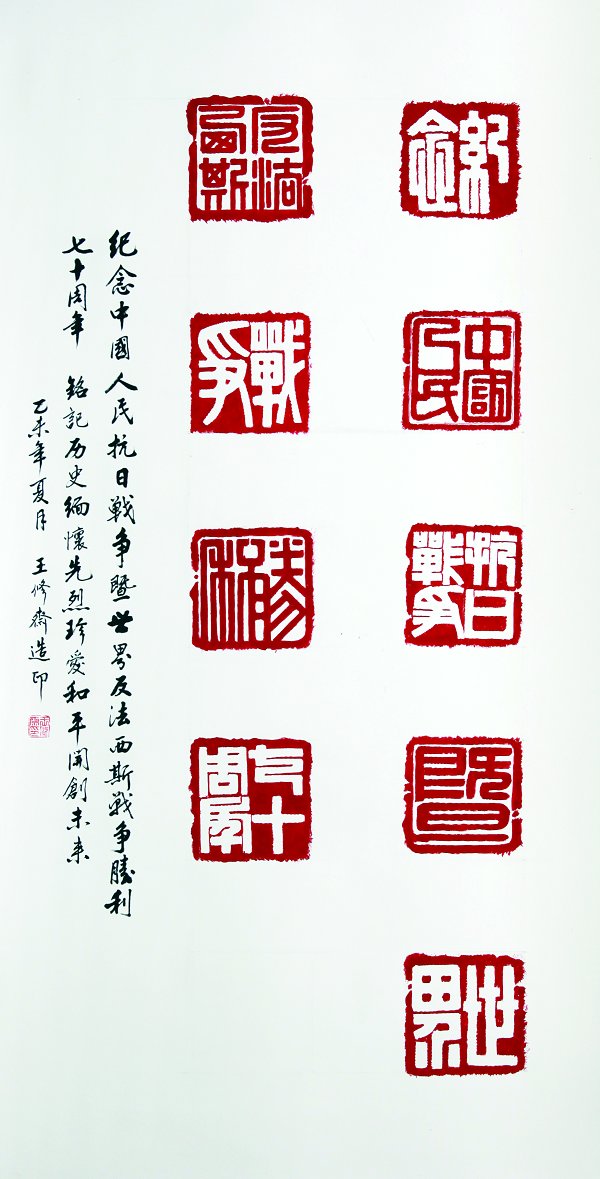 紀念
中國人民
抗日戰爭
暨
世界
反法西斯
戰爭
勝利
七十周年
纪念中國人民抗日戦争暨世界反法西斯戦争勝利
七十周年 銘記历史缅懷先烈珍愛和平開創未来
乙未年夏月 王修齋造印